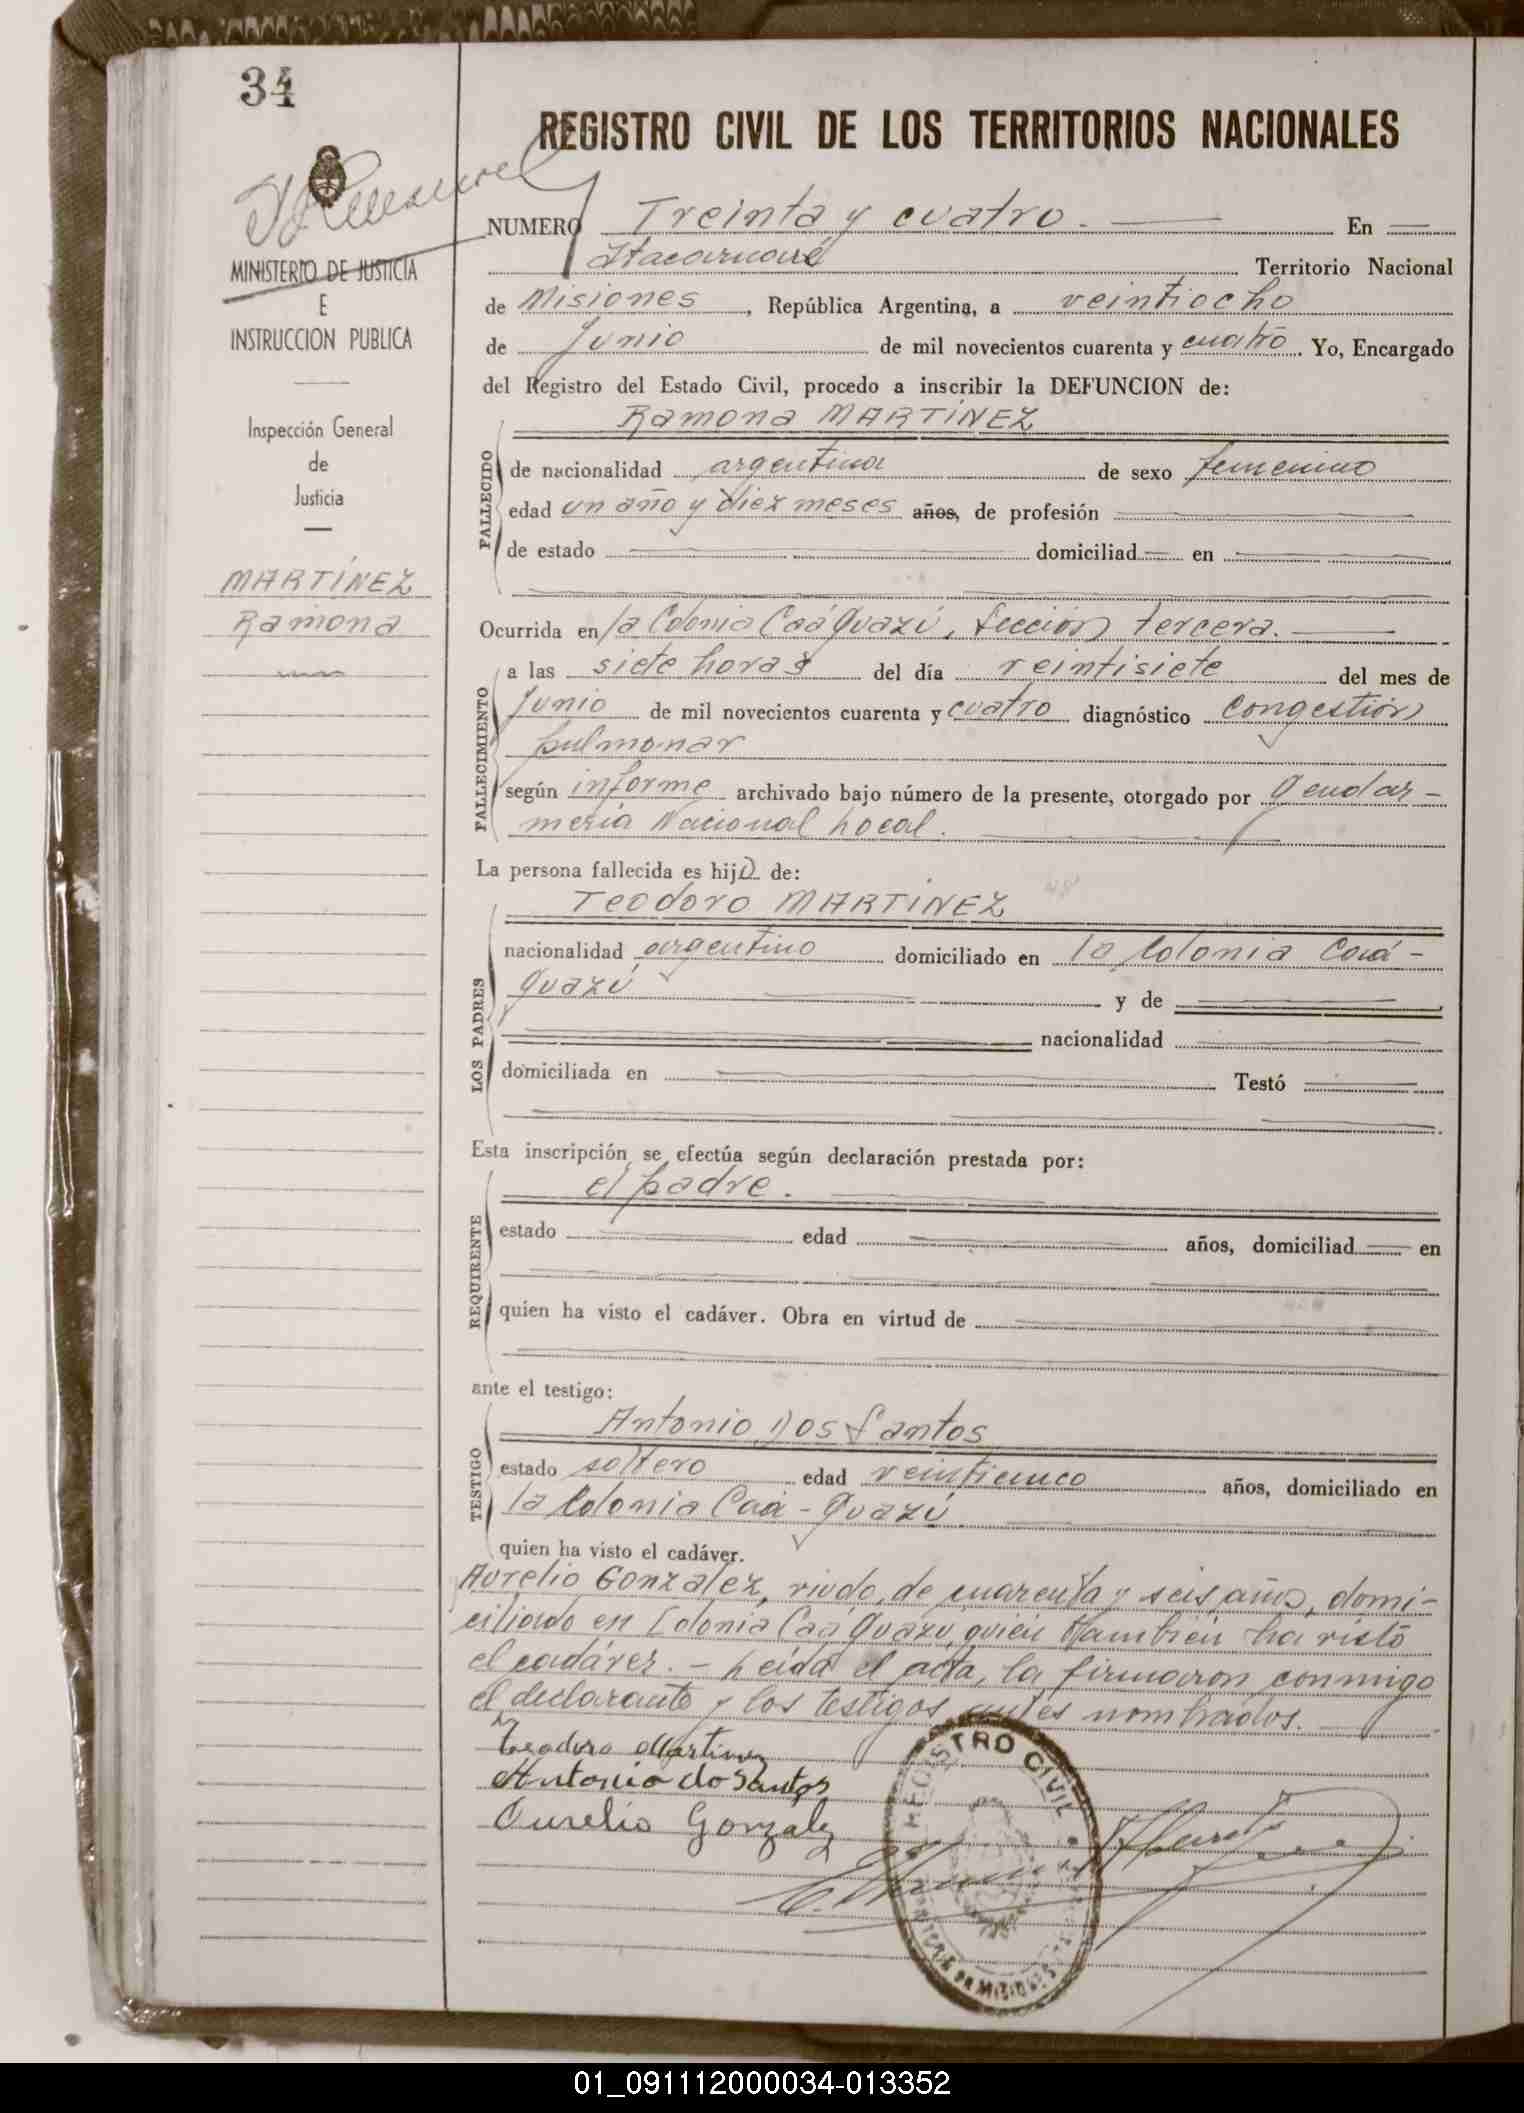 34
REGISTRO CIVIL DE LOS TERRITORIOS NACIONALES
NUMERO Treinta y cuatro. En
Itacaruaré Territorio Nacional
de Misiones, República Argentina, a veintiocho
de Junio de mil novecientos cuarenta y cuatro. Yo, Encargado
del Registro del Estado Civil, procedo a inscribir la DEFUNCION de:
MINISTERIO DE JUSTICIA
E
INSTRUCCION PUBLICA
Inspección General
de
Justicia
MARTÍNEZ
Ramona
Ramona MARTÍNEZ
FALLECIDO
de nacionalidad argentina de sexo femenino
edad un año y diez meses años, de profesión
de estado domiciliad en
Ocurrida en la Colonia Caá Guazú, Sección tercera.
FALLECIMIENTO
a las siete horas del día veintisiete del mes de
Junio de mil novecientos cuarenta y cuatro diagnóstico Congestión
pulmonar
según informe archivado bajo número de la presente, otorgado por Gendar-
mería Nacional Local.
La persona fallecida es hija de:
LOS PADRES
Teodoro MARTÍNEZ
nacionalidad argentino domiciliado en la Colonia Caá-
Guazú y de
nacionalidad
domiciliada en Testó
Esta inscripción se efectúa según declaración prestada por:
REQUIRENTE
el padre.
estado edad años, domiciliad en
quien ha visto el cadáver. Obra en virtud de
ante el testigo:
TESTIGO
Antonio Dos Santos
estado soltero edad veinticinco años, domiciliado en
la Colonia Caá-Guazú
quien ha visto el cadáver.
Aurelio Gonzalez, viudo, de cuarenta y seis años, domi-
ciliado en Colonia Caá Guazú quién también ha visto
el cadáver. - Leída el acta, la firmaron conmigo
el declarante y los testigos antes nombrados.
Teodoro Martinez
Antonio do Santos
Aurelio Gonzalez
REGISTRO CIVIL
01_091112000034-013352